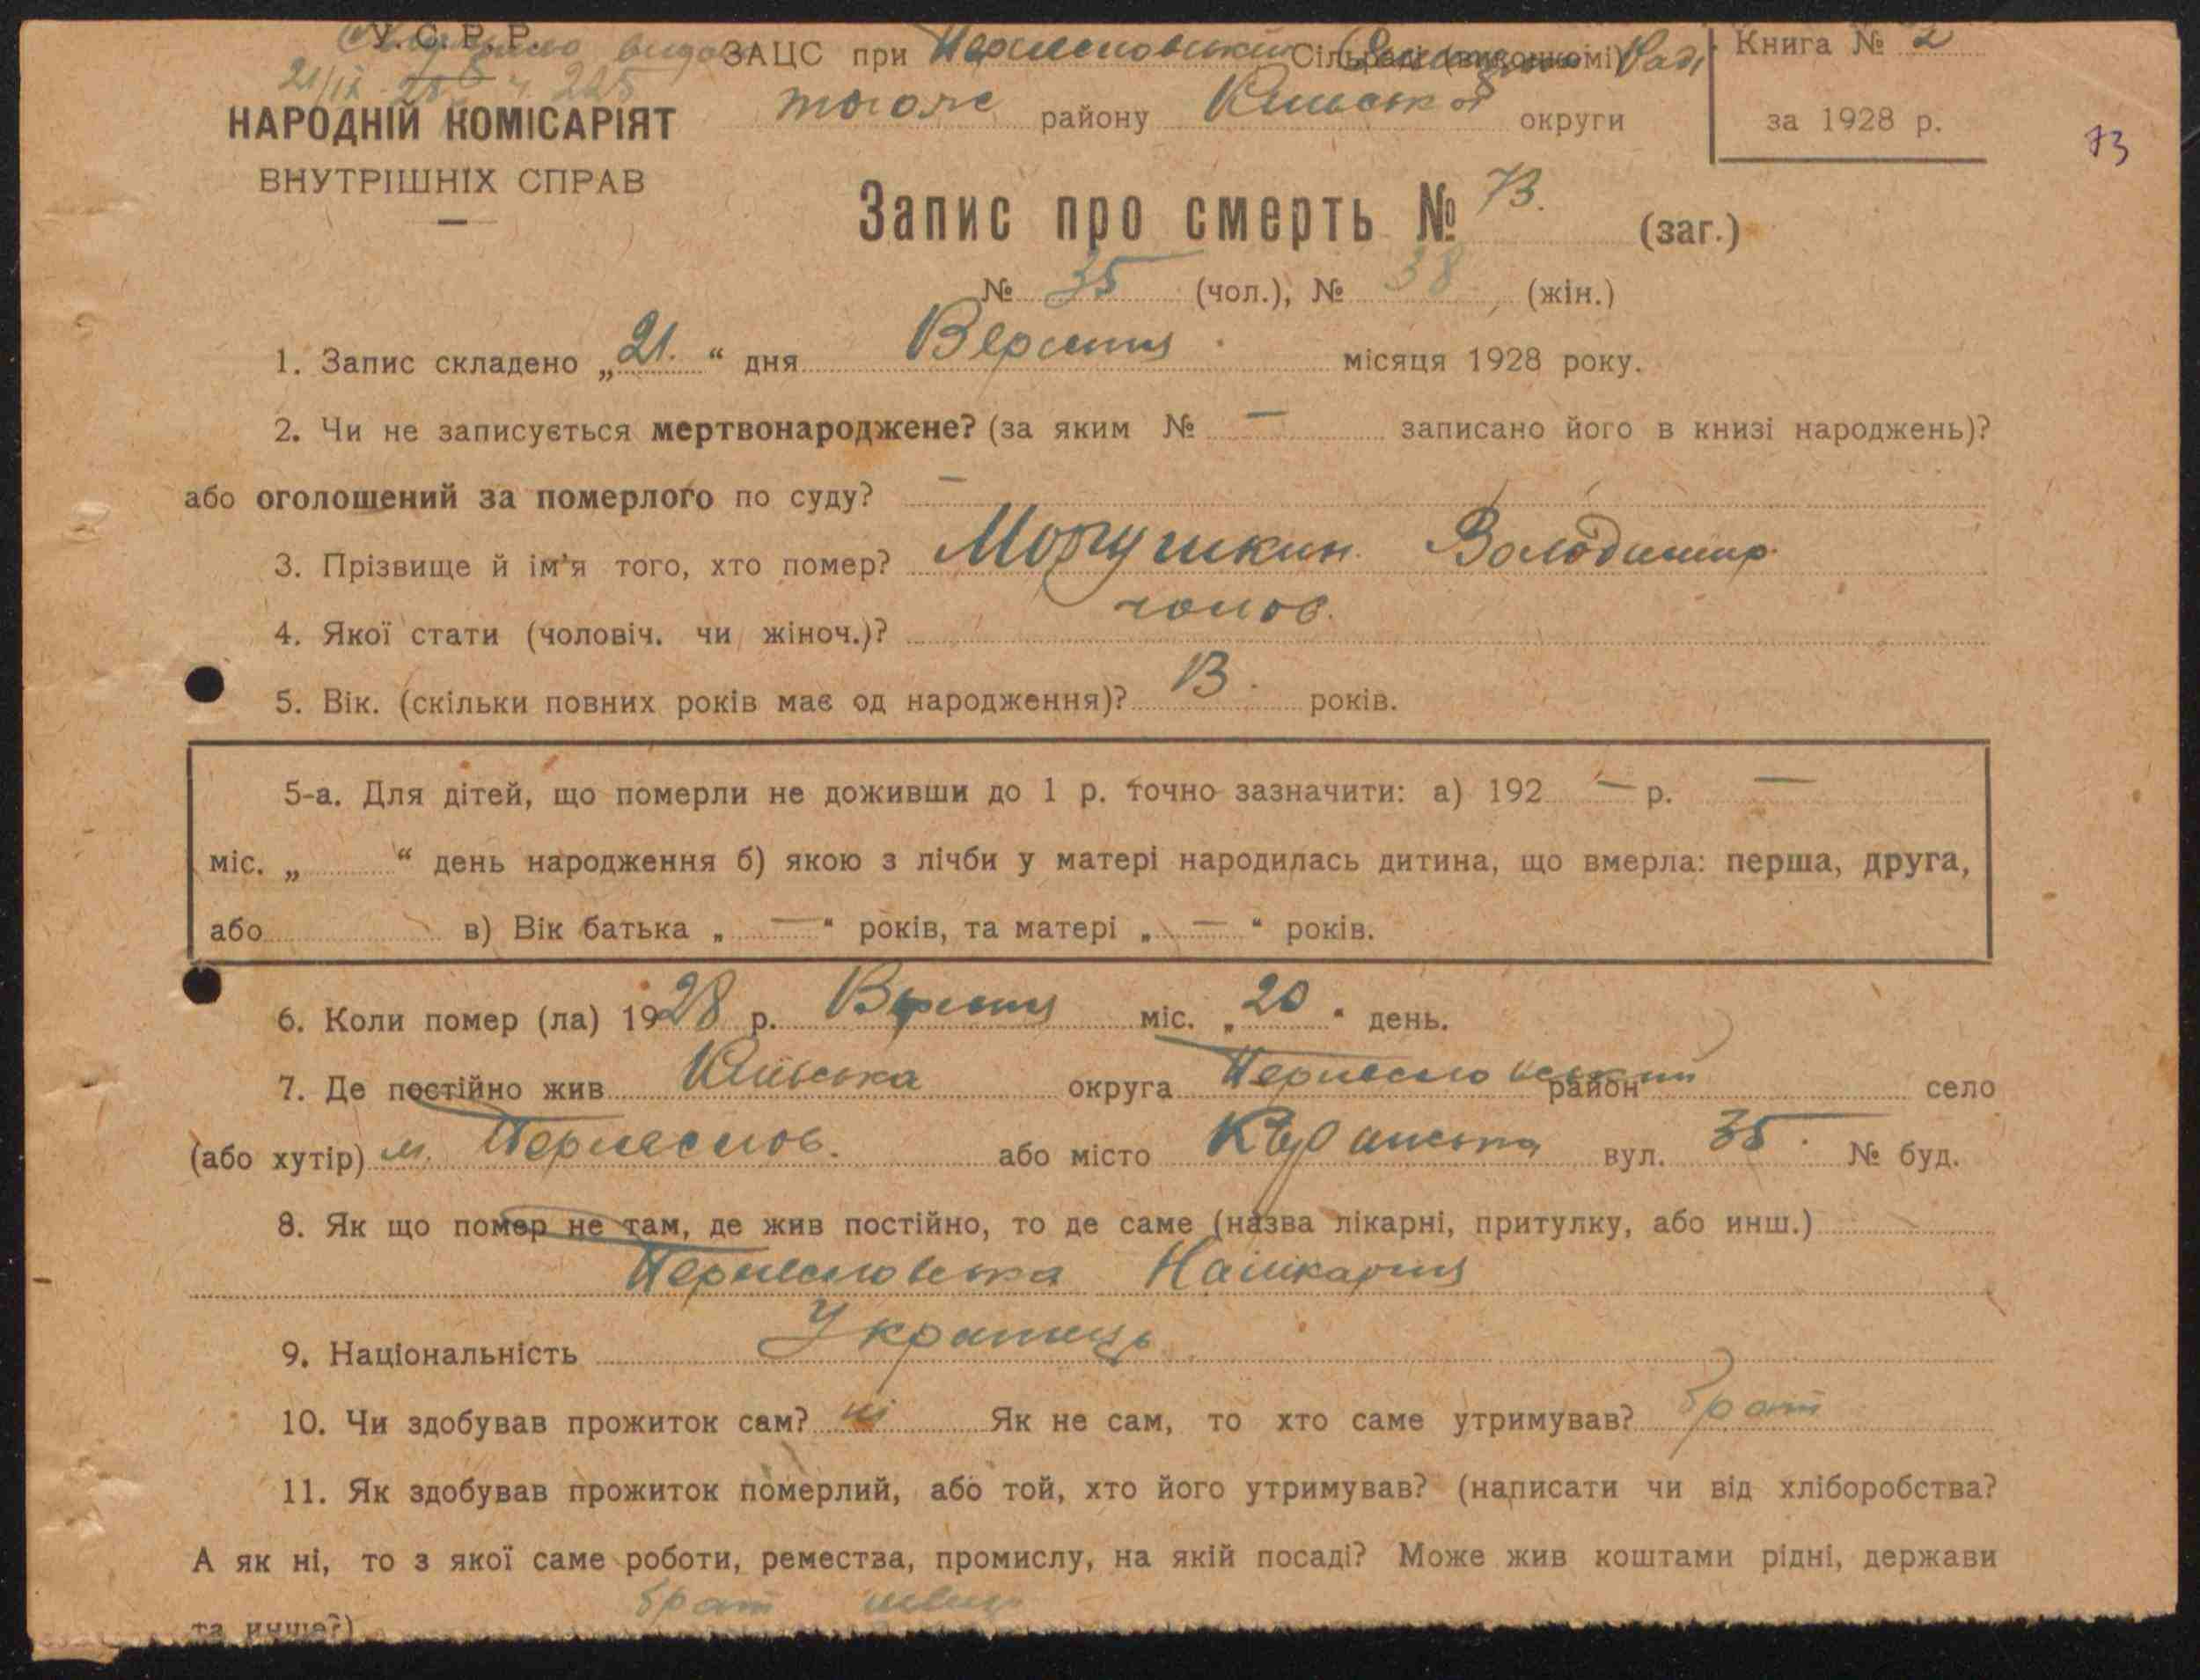 У.С.Р.Р.
21/IX
НАРОДНІЙ КОМІСАРІЯТ
ВНУТРІШНІХ СПРАВ
ЗАЦС при Сільраді (виконкомі)
того ж району Київської округи
Книга № 2
за 1928 р.
73
Запис про смерть № 73. (заг.)
№ 35 (чол.), № 38 (жін.)
1. Запис складено „21.“ дня Вересня місяця 1928 року.
2. Чи не записується мертвонароджене? (за яким № — записано його в книзі народжень)?
або оголошений за померлого по суду? —
3. Прізвище й ім'я того, хто помер? Володимир
4. Якої стати (чоловіч. чи жіноч.)? чолов.
5. Вік. (скільки повних років має од народження)? 13. років.
5-а. Для дітей, що померли не доживши до 1 р. точно зазначити: а) 192 — р. —
міс. „ “ день народження б) якою з лічби у матері народилась дитина, що вмерла: перша, друга,
або в) Вік батька „ — “ років, та матері „ — “ років.
6. Коли помер (ла) 1928 р. Вересня міс. „20“ день.
7. Де постійно жив Київська округа район село
(або хутір) м. або місто вул. 35. № буд.
8. Як що помер не там, де жив постійно, то де саме (назва лікарні, притулку, або инш.)
9. Національність Українець
10. Чи здобував прожиток сам? ні Як не сам, то хто саме утримував? брат
11. Як здобував прожиток померлий, або той, хто його утримував? (написати чи від хліборобства?
А як ні, то з якої саме роботи, ремества, промислу, на якій посаді? Може жив коштами рідні, держави
та инше?) брат швець